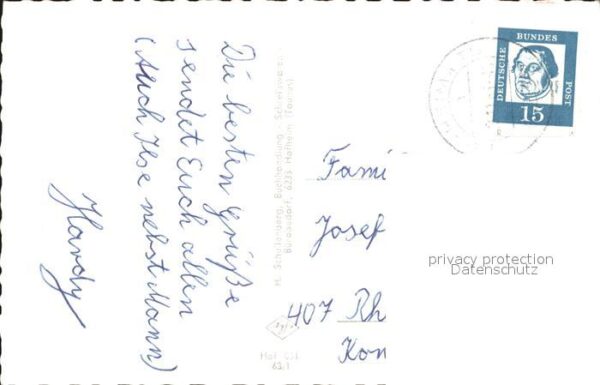 Die besten Grüße
sendet Euch allen
(Auch Ilse nebst Mann)
Hardy
H. Schellenberg, Buchhandlung - Schreibwaren
Bürobedarf, 6238 Hofheim (Taunus)
DEUTSCHE
BUNDES
POST
15
Fami
Josef
407 Rh
Kon
privacy protection
Datenschutz
Agfa
Hof
63/1